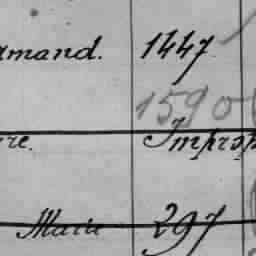 rmand. 1447
1590
re. Improp
Marie 297